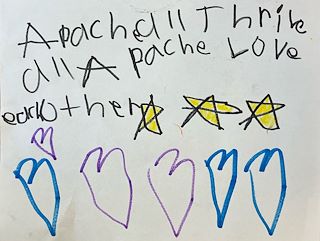 Apache all Thrive
all Apache Love
each Other